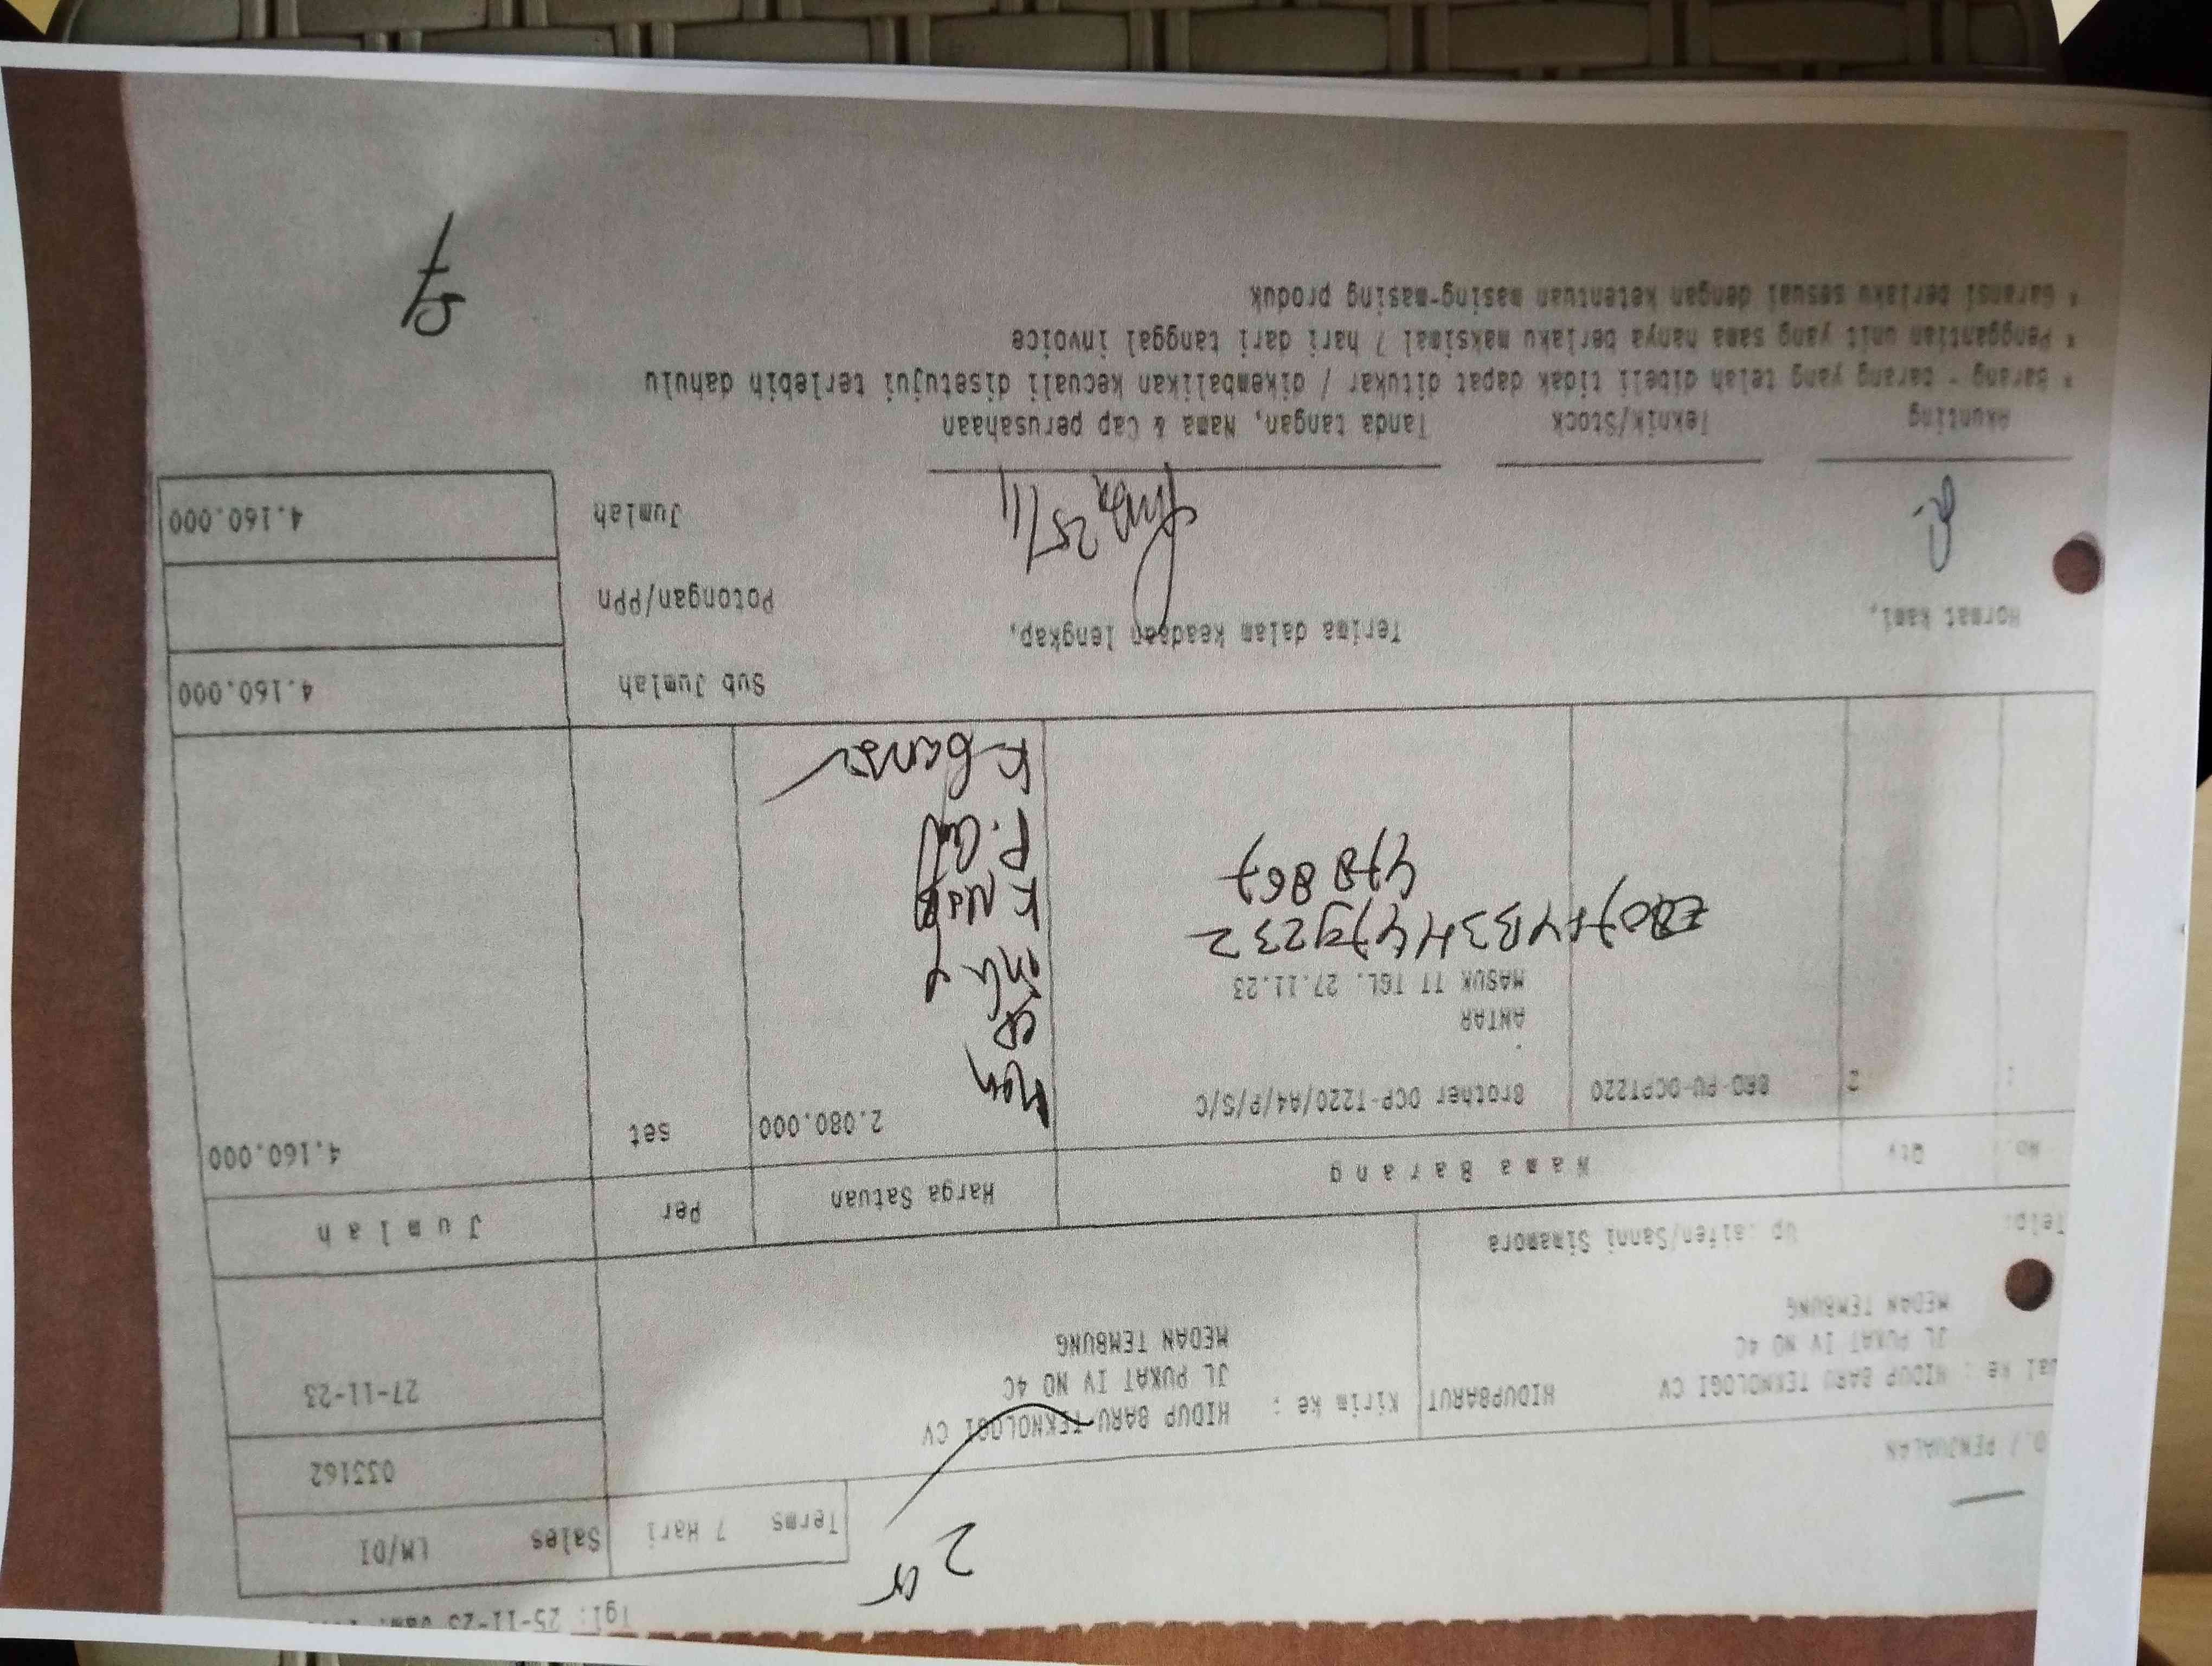 Tgl: 25-11-23
Terms 7 Hari Sales LM/DI
033162
/ PENJUALAN
HIDUP BARU TEKNOLOGI CV HIDUPBARUT
JL PUKAT IV NO 4C
MEDAN TEMBUNG
Kirim ke : HIDUP BARU TEKNOLOGI CV
JL PUKAT IV NO 4C
MEDAN TEMBUNG
27-11-23
Telp: Up :aifen/Sanni Simamora
No. Qty Nama Barang Harga Satuan Per Jumlah
2 BRO-PU-DCPT220 Brother DCP-T220/A4/P/S/C 2.080.000 set 4.160.000
ANTAR
MASUK TT TGL. 27.11.23
478867
Sub Jumlah 4.160.000
Hormat kami, Terima dalam keadaan lengkap,
Potongan/PPn
25/11
Jumlah 4.160.000
Akunting Teknik/Stock Tanda tangan, Nama & Cap perusahaan
* Barang - barang yang telah dibeli tidak dapat ditukar / dikembalikan kecuali disetujui terlebih dahulu
* Penggantian unit yang sama hanya berlaku maksimal 7 hari dari tanggal invoice
* Garansi berlaku sesuai dengan ketentuan masing-masing produk